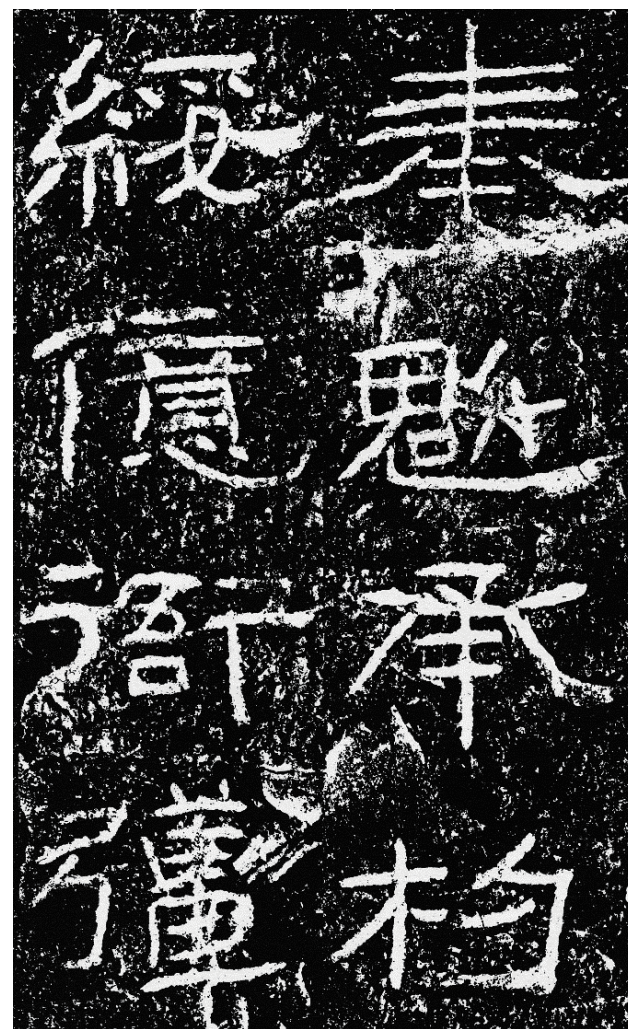 奉魁承杓
綏億衙彊